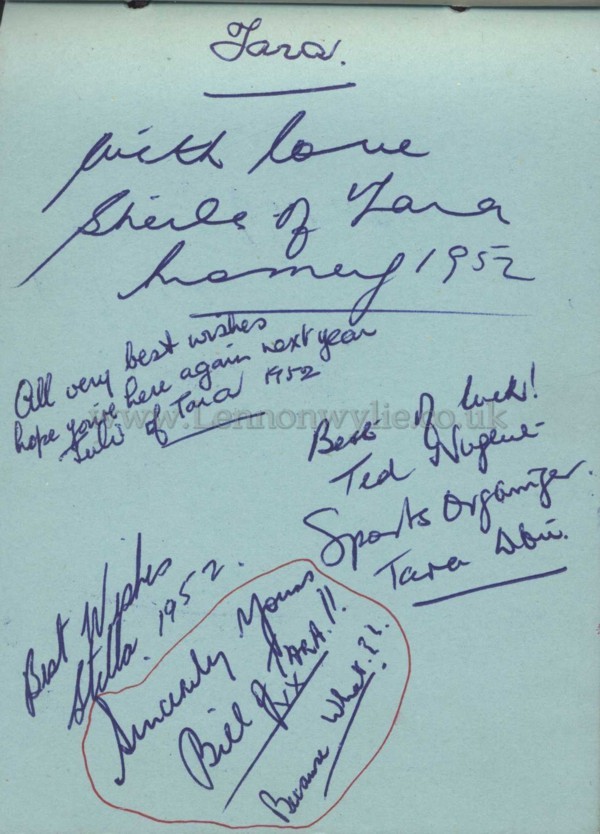 Tara.
With love
Sheila of Tara
1952
All very best wishes
hope you're here again next year
of Tara 1952
www.Lennonwylie.co.uk
Best of luck!
Ted Nugent
Sports Organizer.
Tara
Best Wishes
Stella. 1952.
Sincerely Yours
Bill Rix
TARA!!
Because What??.